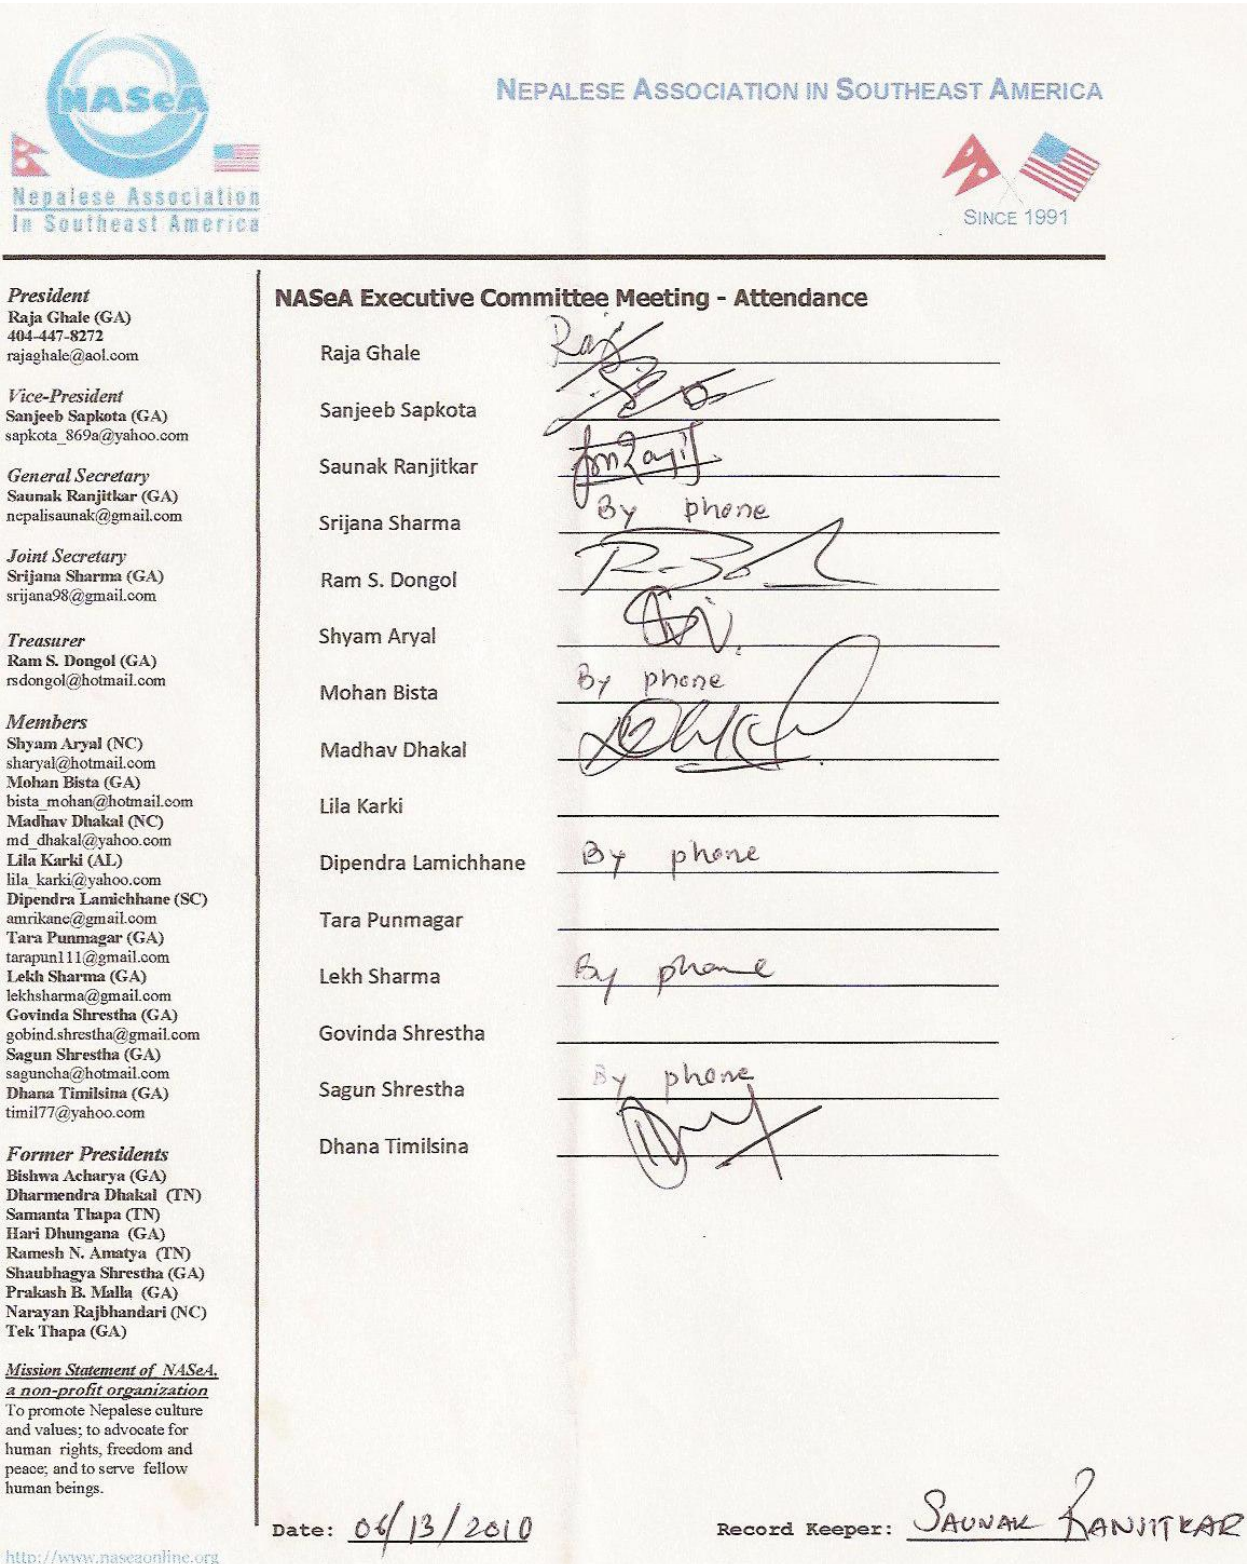 NASeA
Nepalese Association
In Southeast America
NEPALESE ASSOCIATION IN SOUTHEAST AMERICA
SINCE 1991
President
Raja Ghale (GA)
404-447-8272
rajaghale@aol.com
Vice-President
Sanjeeb Sapkota (GA)
sapkota_869a@yahoo.com
General Secretary
Saunak Ranjitkar (GA)
nepalisaunak@gmail.com
Joint Secretary
Srijana Sharma (GA)
srijana98@gmail.com
Treasurer
Ram S. Dongol (GA)
rsdongol@hotmail.com
Members
Shyam Aryal (NC)
sharyal@hotmail.com
Mohan Bista (GA)
bista_mohan@hotmail.com
Madhav Dhakal (NC)
md_dhakal@yahoo.com
Lila Karki (AL)
lila_karki@yahoo.com
Dipendra Lamichhane (SC)
amrikane@gmail.com
Tara Punmagar (GA)
tarapun111@gmail.com
Lekh Sharma (GA)
lekhsharma@gmail.com
Govinda Shrestha (GA)
gobind.shrestha@gmail.com
Sagun Shrestha (GA)
saguncha@hotmail.com
Dhana Timilsina (GA)
timil77@yahoo.com
Former Presidents
Bishwa Acharya (GA)
Dharmendra Dhakal (TN)
Samanta Thapa (TN)
Hari Dhungana (GA)
Ramesh N. Amatya (TN)
Shaubhagya Shrestha (GA)
Prakash B. Malla (GA)
Narayan Rajbhandari (NC)
Tek Thapa (GA)
Mission Statement of NASeA,
a non-profit organization
To promote Nepalese culture
and values; to advocate for
human rights, freedom and
peace; and to serve fellow
human beings.
http://www.naseaonline.org
NASeA Executive Committee Meeting - Attendance
Raja Ghale
Sanjeeb Sapkota
Saunak Ranjitkar
Srijana Sharma By phone
Ram S. Dongol
Shyam Aryal
Mohan Bista By phone
Madhav Dhakal
Lila Karki
Dipendra Lamichhane By phone
Tara Punmagar
Lekh Sharma By phone
Govinda Shrestha
Sagun Shrestha By phone
Dhana Timilsina
Date: 06/13/2010
Record Keeper: SAUNAK RANJITKAR